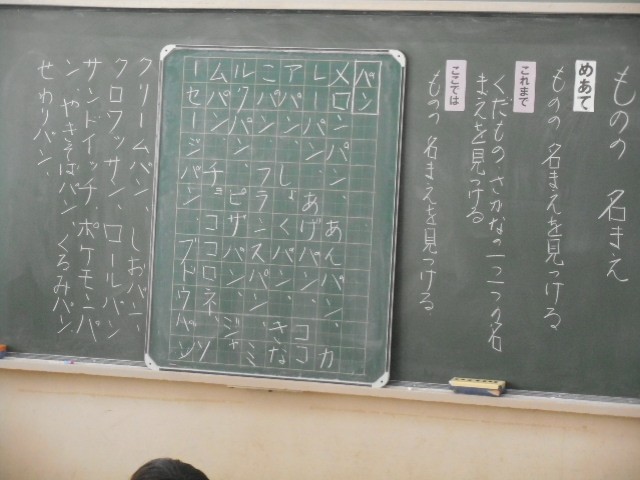 ものの 名まえ
めあて
ものの 名まえを見つける
これまで
くだもの さかなの一つ一つの名
まえを見つける
ここでは
ものの 名まえを見つける
パン
メロンパン、あんパン、カ
レーパン、あげパン、ココ
アパン、しょくパン、きな
こパン、フランスパン、ミ
ルクパン、ピザパン、ジャ
ムパン、チョココロネ、ソ
ーセージパン、ブドウパン
クリームパン、しおパン、
クロワッサン、ロールパン
サンドイッチ、ポケモンパ
ン、やきそばパン、くるみパン、
せわりパン、